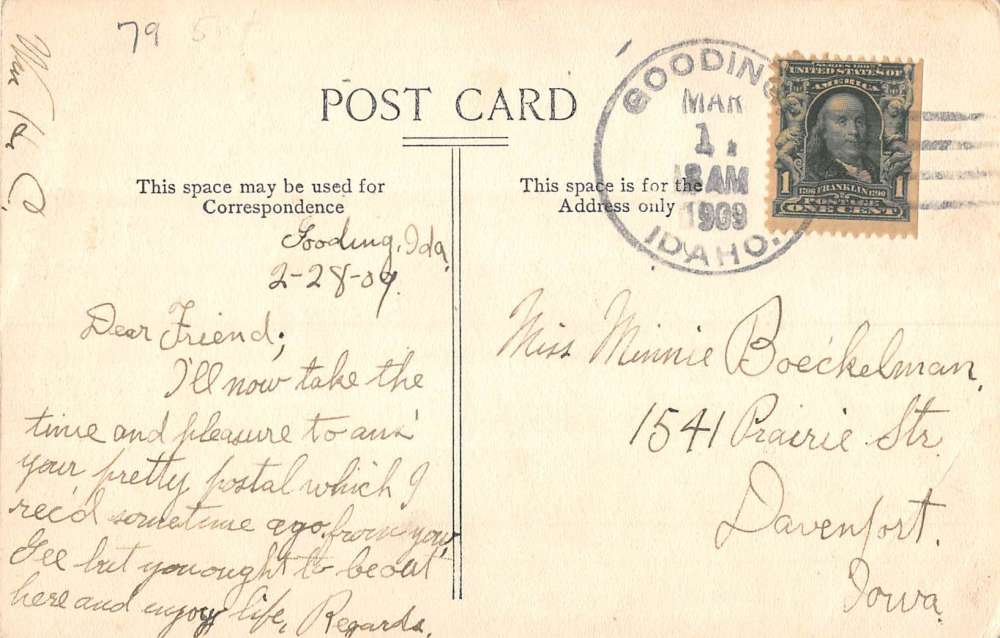 79
Wm H. C.
POST CARD
This space may be used for
Correspondence
Gooding, Ida.
2-28-09.
Dear Friend;
I'll now take the
time and pleasure to ans'
your pretty postal which I
rec'd sometime ago from you,
Gee but you ought to be out
here and enjoy life, Regards.
This space is for the
Address only
GOODING
MAR
1
AM
1909
IDAHO.
UNITED STATES OF
AMERICA
1 1706 FRANKLIN 1790 1
POSTAGE
ONE CENT
Miss Minnie Boeckelman,
1541 Prairie Str.
Davenport.
Iowa.